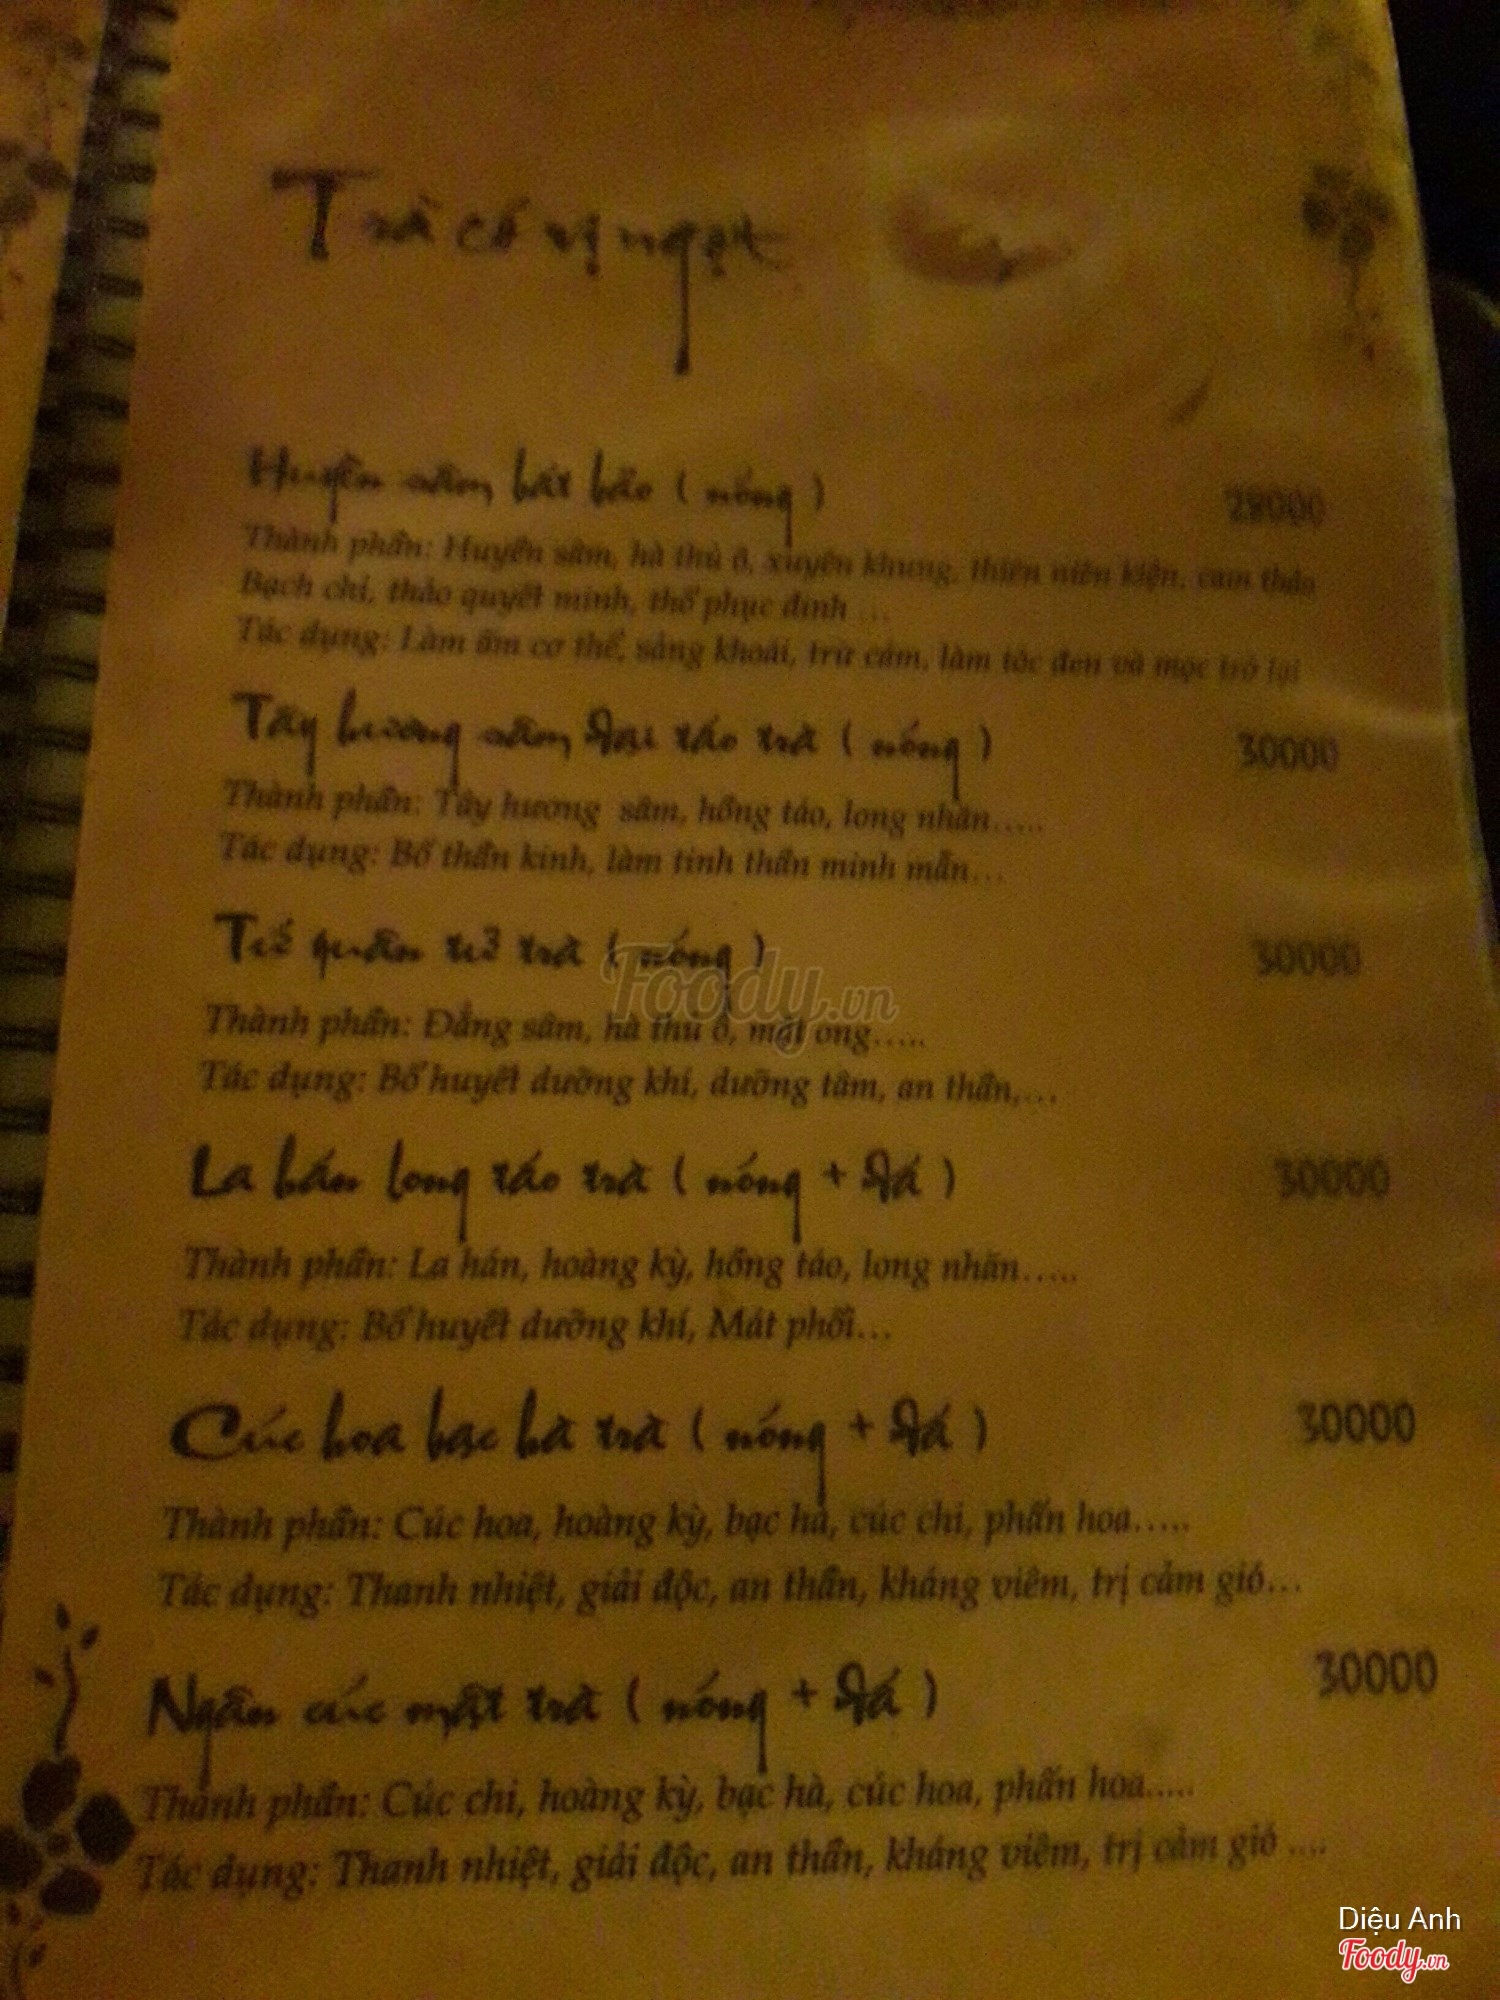 Trà có vị ngọt
Huyền sâm bát bảo ( nóng )
28000
Thành phần: Huyền sâm, hà thủ ô, xuyên khung, thiên niên kiện, cam thảo
Bạch chỉ, thảo quyết minh, thổ phục đinh ...
Tác dụng: Làm ấm cơ thể, sảng khoái, trừ cảm, làm tóc đen và mọc trở lại
Tây hương sâm đại táo trà ( nóng )
30000
Thành phần: Tây hương sâm, hồng táo, long nhãn.....
Tác dụng: Bổ thần kinh, làm tinh thần minh mẫn...
Tứ quân tử trà ( nóng )
30000
Thành phần: Đẳng sâm, hà thủ ô, mật ong.....
Tác dụng: Bổ huyết dưỡng khí, dưỡng tâm, an thần,...
La hán long táo trà ( nóng + đá )
30000
Thành phần: La hán, hoàng kỳ, hồng táo, long nhãn.....
Tác dụng: Bổ huyết dưỡng khí, Mát phổi...
Cúc hoa bạc hà trà ( nóng + đá )
30000
Thành phần: Cúc hoa, hoàng kỳ, bạc hà, cúc chi, phấn hoa.....
Tác dụng: Thanh nhiệt, giải độc, an thần, kháng viêm, trị cảm gió...
Ngân cúc mật trà ( nóng + đá )
30000
Thành phần: Cúc chi, hoàng kỳ, bạc hà, cúc hoa, phấn hoa.....
Tác dụng: Thanh nhiệt, giải độc, an thần, kháng viêm, trị cảm gió ....
Foody.vn
Diệu Anh
Foody.vn